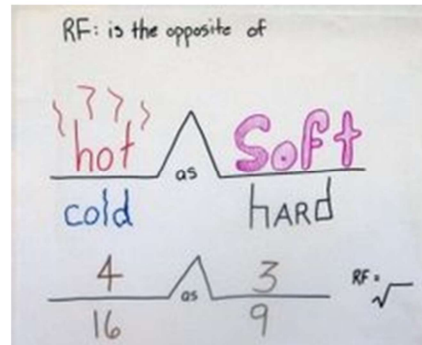 RF: is the opposite of
hot as Soft
cold hARd
4 as 3
16 9
RF = √